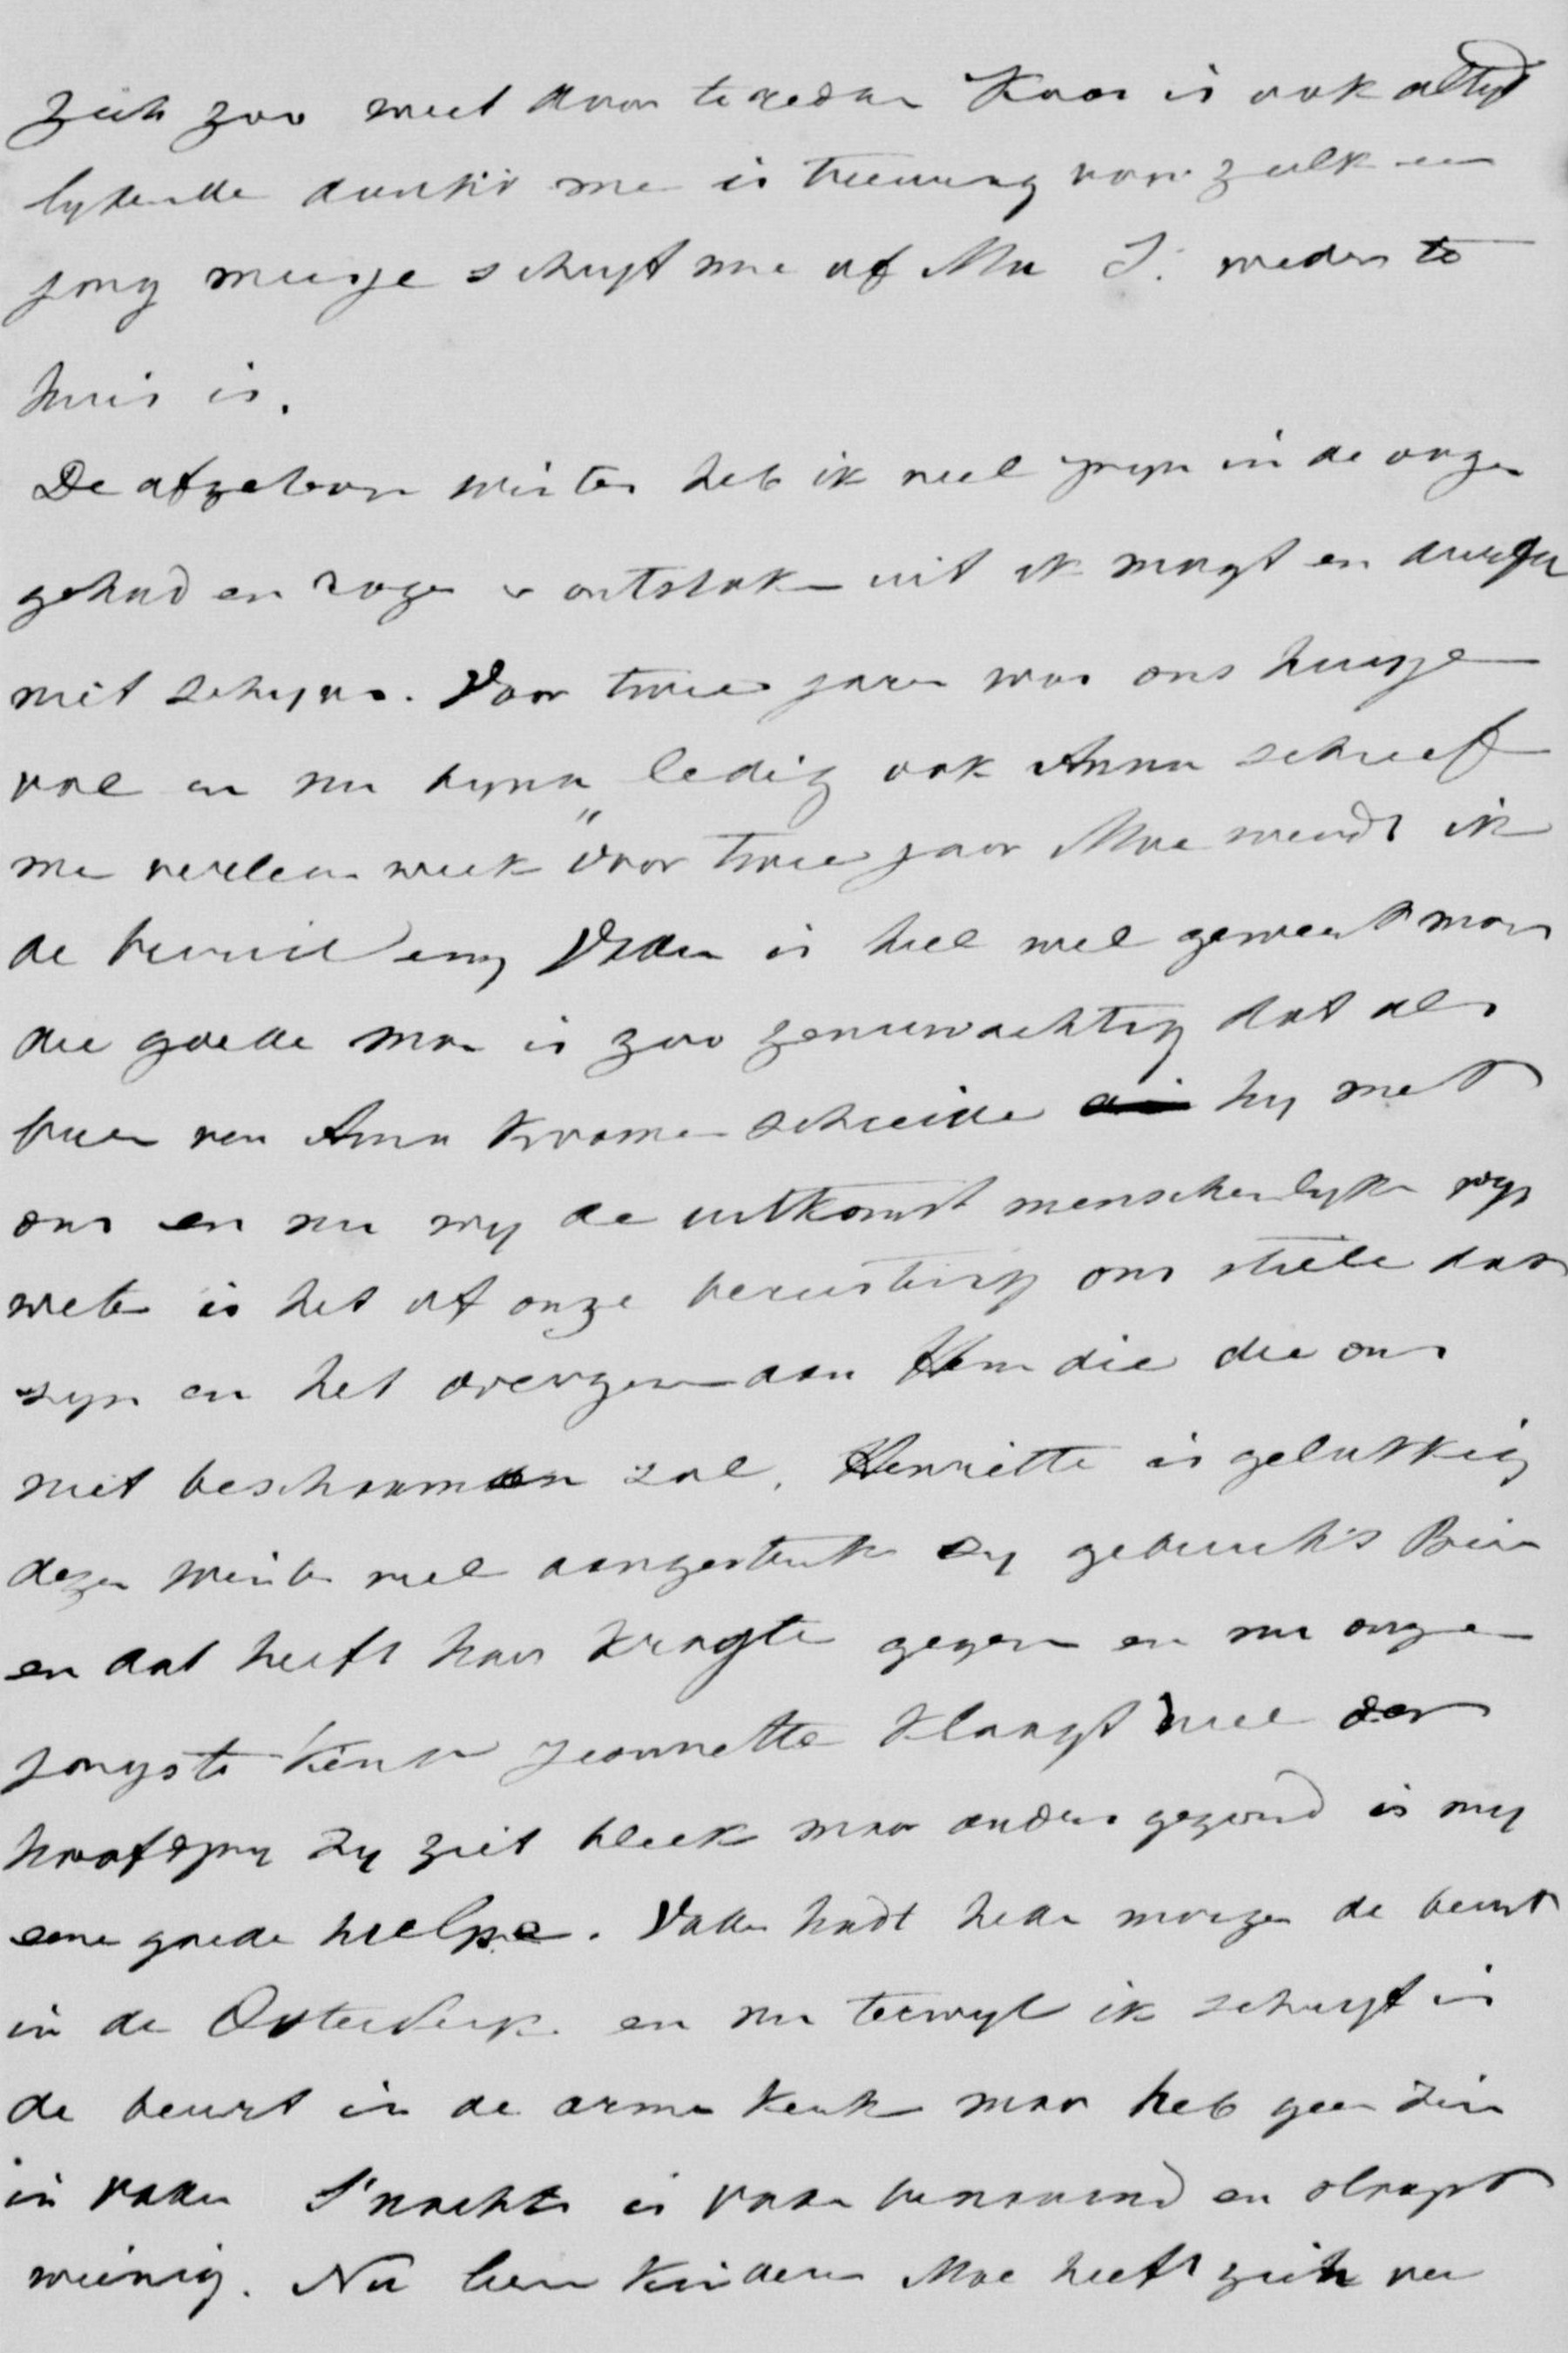 zich zoo weet door te redden Koos is ook altyd
lydende dunkt me is treurig voor zulk een
jong meisje schryft me of Ma J. weder te
huis is.
De afgeloopen winter heb ik veel pyn in de oogen
gehad en roze ontstoken uit ik mogt en durfde
niet schryven. Voor twee jaren was ons huisje
vol en nu byna ledig ook Anna schreef
me verleden week "voor twee jaar Moe werdt ik
de Vader is heel wel geweest maar
die goede man is zoo zenuwachtig dat als
brieven van Anna kwamen schreide hy met
ons en nu wy de uitkomst menschelyker wys
weten is het of onze berusting ons stille doet
zyn en het overgeven aan Hem die die ons
niet beschaamen zal. Henriette is gelukkig
dezen winter veel aangesterkt zy gebruikt Bier
en dat heeft haar kragten gegeven en nu onze
jongste kind Jeannette klaagt veel over
hoofdpyn zy ziet bleek maar anders gezond is my
eene goede hielpe. Vader hadt heden morgen de beurt
in de Oosterkerk en nu terwyl ik schryft is
de beurt in de arme kerk maar heb geen zin
in vader S'nachts is vader benaauwd en slaapt
weinig. Nu lieve kinderen Moe heeft zich